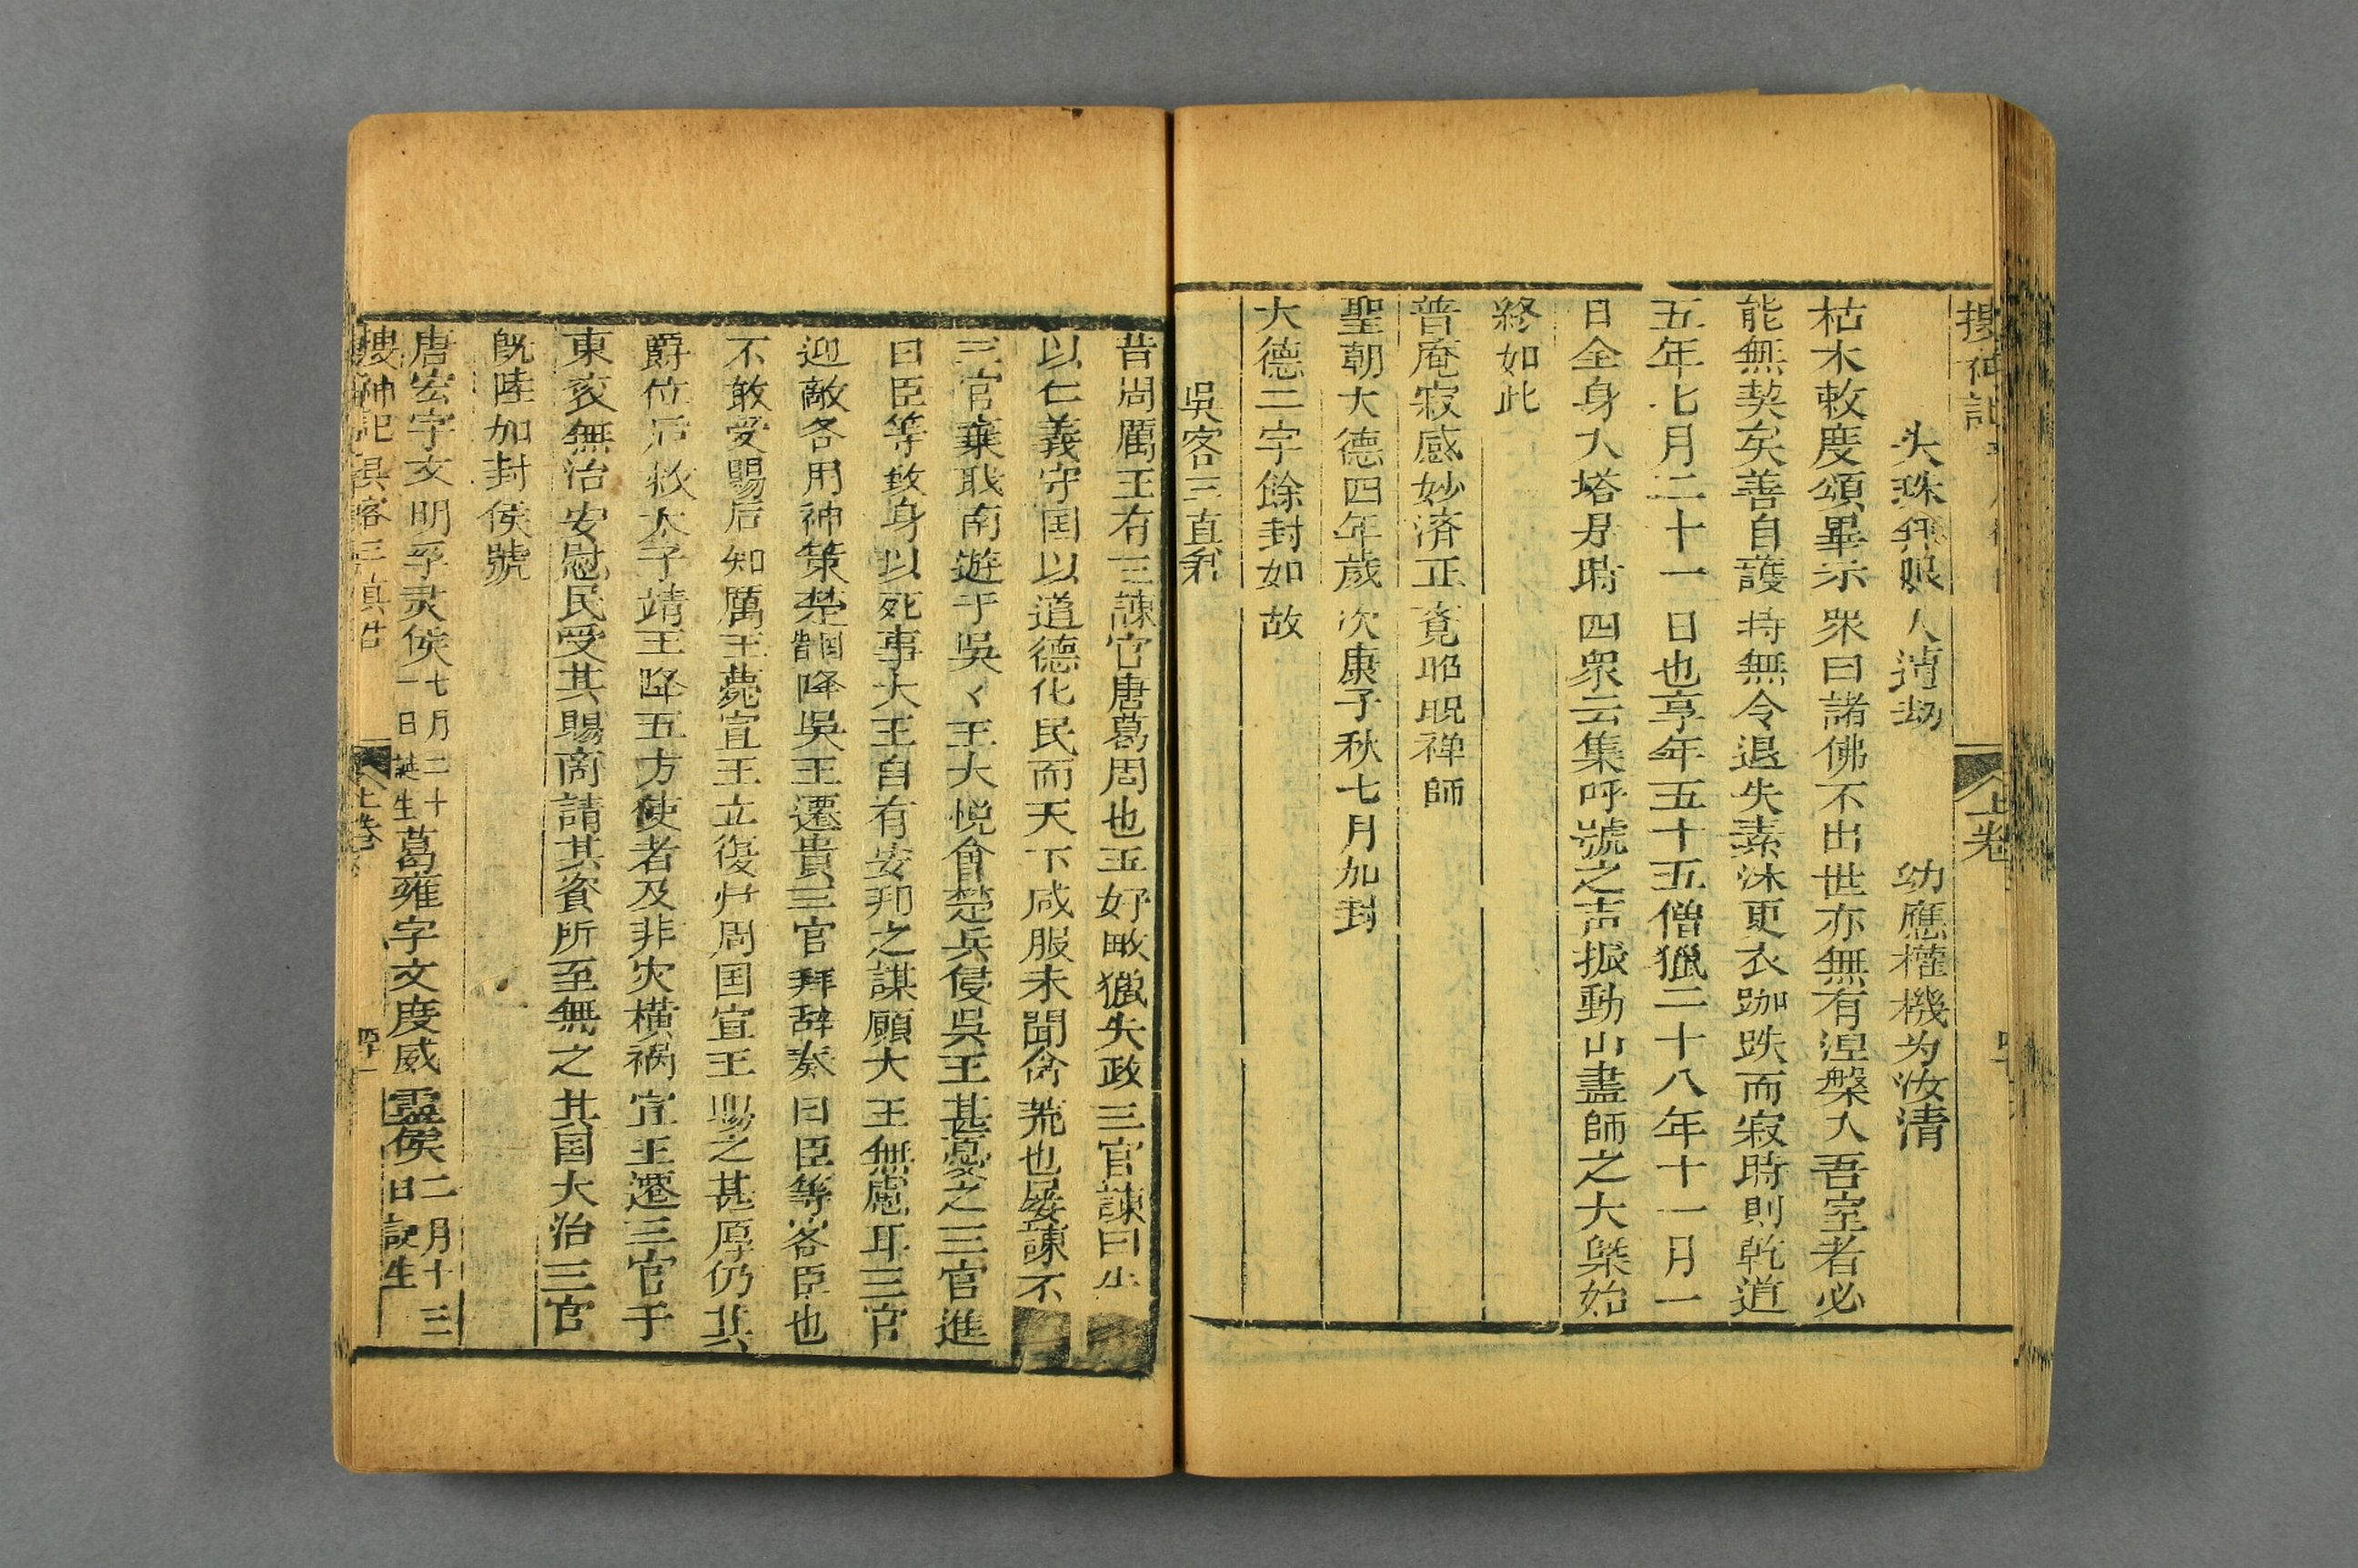 搜神記
上卷
失珠無限人遭劫　幼應權機为汝清
枯木敕度頌畢示眾曰諸佛不出世亦無有湼槃入吾室者必
能無契矣善自護持無令退失素沐更衣跏趺而寂時則乾道
五年七月二十一日也享年五十五僧獵二十八年十一月一
日全身入塔是時四眾云集呼號之声振動山盡師之大槩始
終如此
普庵寂感妙済正覔昭貺禅師
聖朝大德四年歲次庚子秋七月加封
大德二字餘封如故
吳客三真君
昔周厲王有三諫官唐葛周也王好畋獵失政三官諫曰
以仁義守国以道德化民而天下咸服未聞禽荒也屡諫不
三官棄职南遊于吳〻王大悅會楚兵侵吳王甚憂之三官進
曰臣等致身以死事大王自有安邦之謀願大王無慮耳三官
迎敵各用神策楚國降吳王遷貴三官拜辞奏曰臣等客臣也
不敢受賜后知厲王薨宣王立復歸周国宣王賜之甚厚仍其
爵位后救太子靖王降五方使者及非灾横祸宣王遷三官于
東兖無治安慰民受其賜商請其資所至無之其国大治三官
旣陞加封侯號
唐宏字文明孚灵侯七月二十一日誕生葛雍字文度威靈侯二月十三日誕生
搜神記　吳客三真君
上卷
四十一